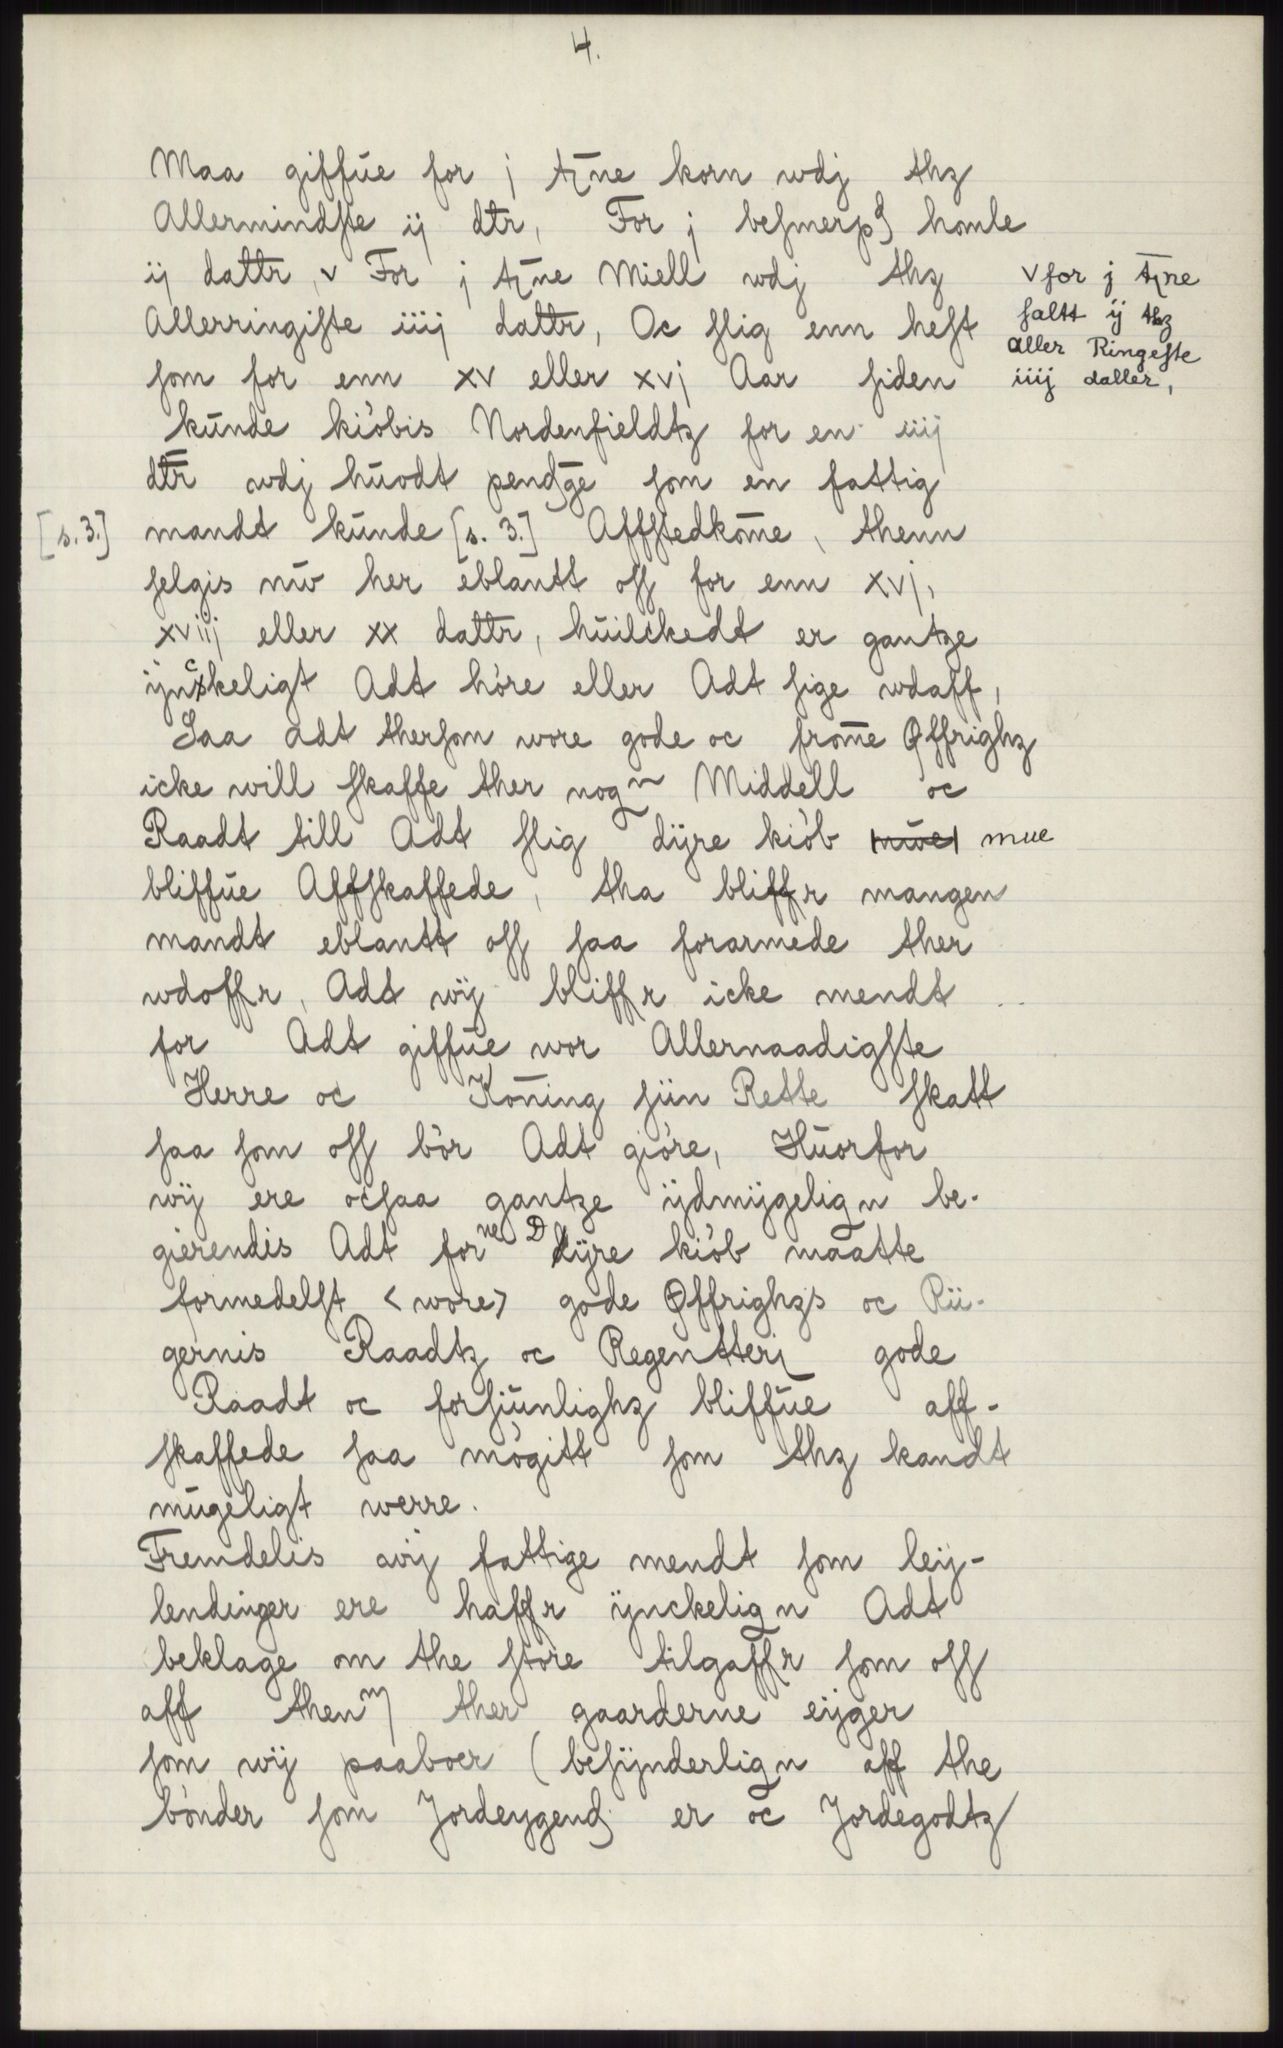 4.
Maa giffue for j tꝛne korn wdj thz
Allermindste ij dlr, For j besmerpd homle
ij dallr, v For j tꝛne Miell wdj thz
v for j tꝛne
saltt ij thz
aller Ringeste
iiij daller,
Allerringiste iiij dallr, Oc slig enn hest
som for enn xv eller xvj Aar siden
kunde kiöbis Nordenfieldtz for en iiij
dlr wdj huodt pendge som en fattig
[s. 3.] mandt kunde [s. 3.] Affstedkom̄e, thenn
selgis nw her eblantt oss for enn xvj,
xviij eller xx dallr, huilckedt er gantze
ijnckeligt Adt höre eller Adt sige wdaff,
Saa adt thersom wore gode oc from̄e Øffrighz
icke will skaffe ther nogn Middell oc
Raadt till Adt slig dijre kiöb mue
bliffue Affskaffede, tha bliffr mangen
mandt eblantt oss saa forarmede ther
wdoffr, Adt wij bliffr icke mendt
for Adt giffue wor Allernaadigste
Herre oc Kon̄ing siin Rette skatt
saa som oss bör Adt giöre, Huorfor
wij ere ocsaa gantze ijdmijgelign be-
gierendis Adt forne Dijre kiöb maatte
formedelst <wore> gode Øffrighzs oc Rii-
gernis Raadtz oc Regentteri gode
Raadt oc forsiunlighz bliffue aff-
skaffede saa mögitt som thz kandt
mugeligt werre.
Fremdelis wij fattige mendt som leij-
lendinger ere haffr ijnckelign Adt
beklage om the store tilgaffr som oss
aff thenm ther gaarderne eijger
som wij paaboer (besijnderlign aff the
bönder som Jordeygend er oc Jordegodtz